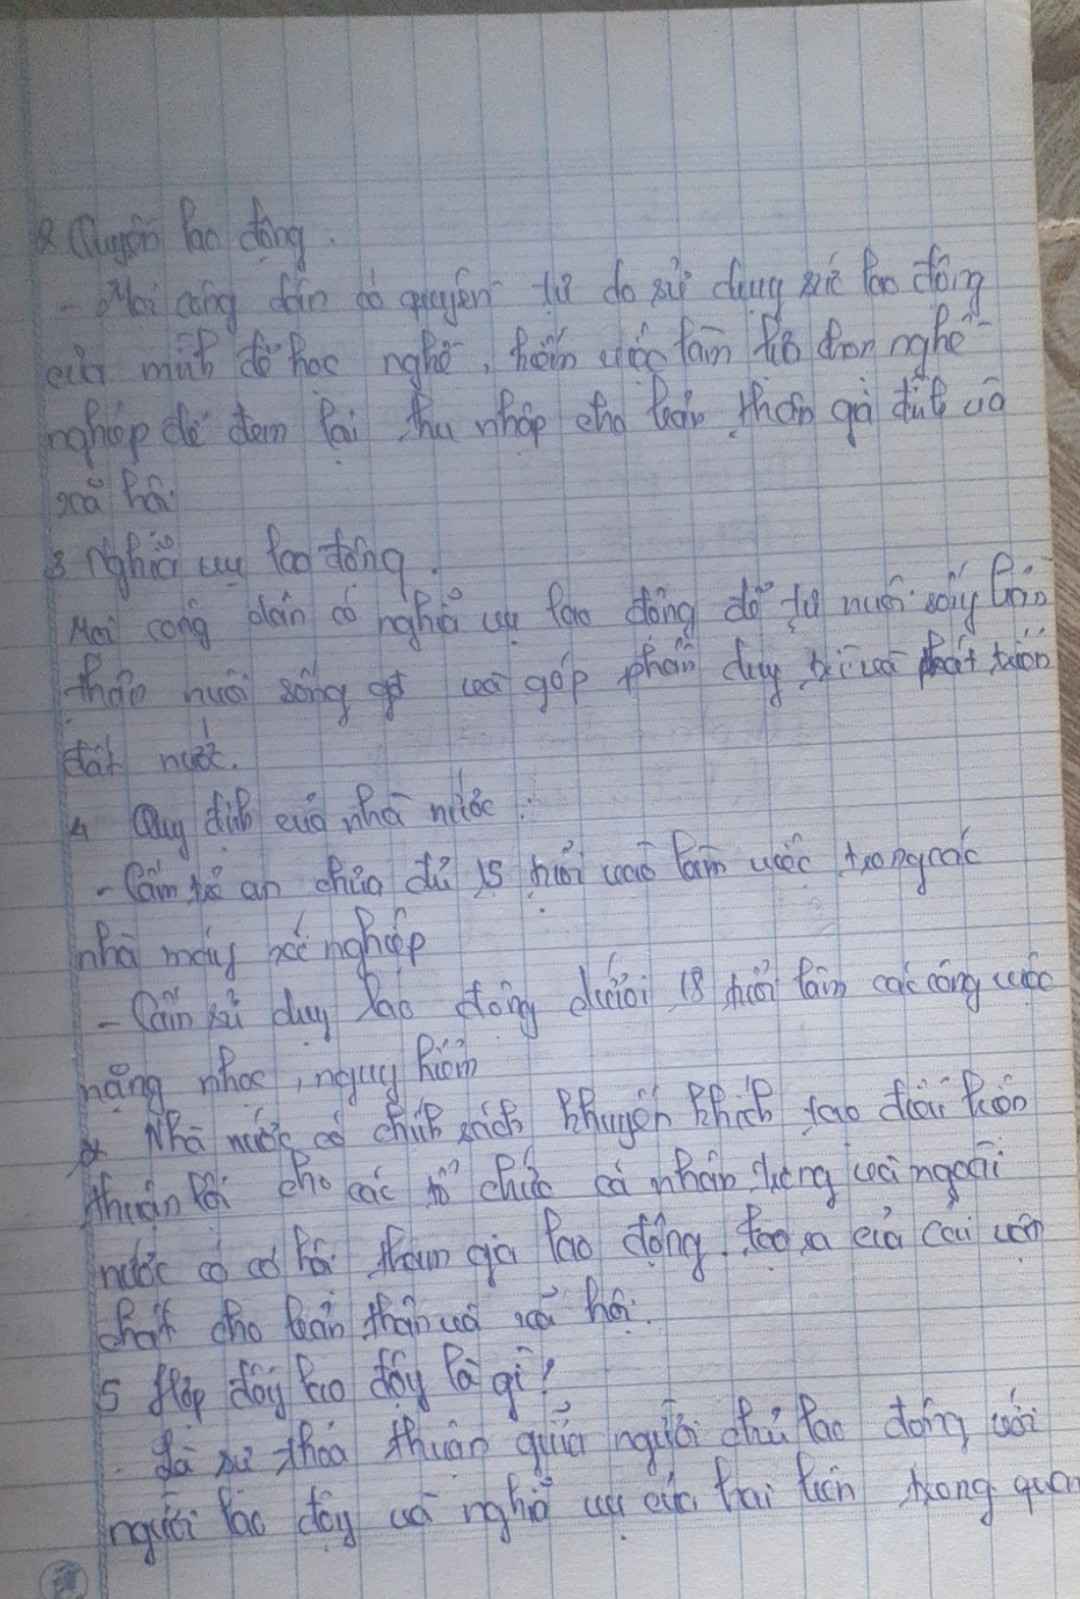 2 Quyền lao động.
- Mọi công dân có quyền tự do sử dụng sức lao động
của mình để học nghề, kiếm việc làm lựa chọn nghề
nghiệp để đem lại thu nhập cho bản thân gia đình và
xã hội
3 Nghĩa vụ lao động.
Mọi công dân có nghĩa vụ lao động để tự nuôi sống bản
thân nuôi sống gđ và góp phần duy trì và phát triển
đất nước.
4 Quy định của nhà nước:
- Cấm trẻ an chưa đủ 15 tuổi vào làm việc trong các
nhà máy xí nghiệp
- Cấm sử dụng lao động dưới 18 tuổi làm các công việc
nặng nhọc, nguy hiểm
Nhà nước có chính sách khuyến khích tạo điều kiện
thuận lợi cho các tổ chức cá nhân trong và ngoài
nước có cơ hội tham gia lao động tạo ra của cải vật
chất cho bản thân và xã hội.
5 Hợp đồng lao động là gì?
Là sự thỏa thuận giữa người chủ lao động với
người lao động và nghĩa vụ của hai bên trong quan